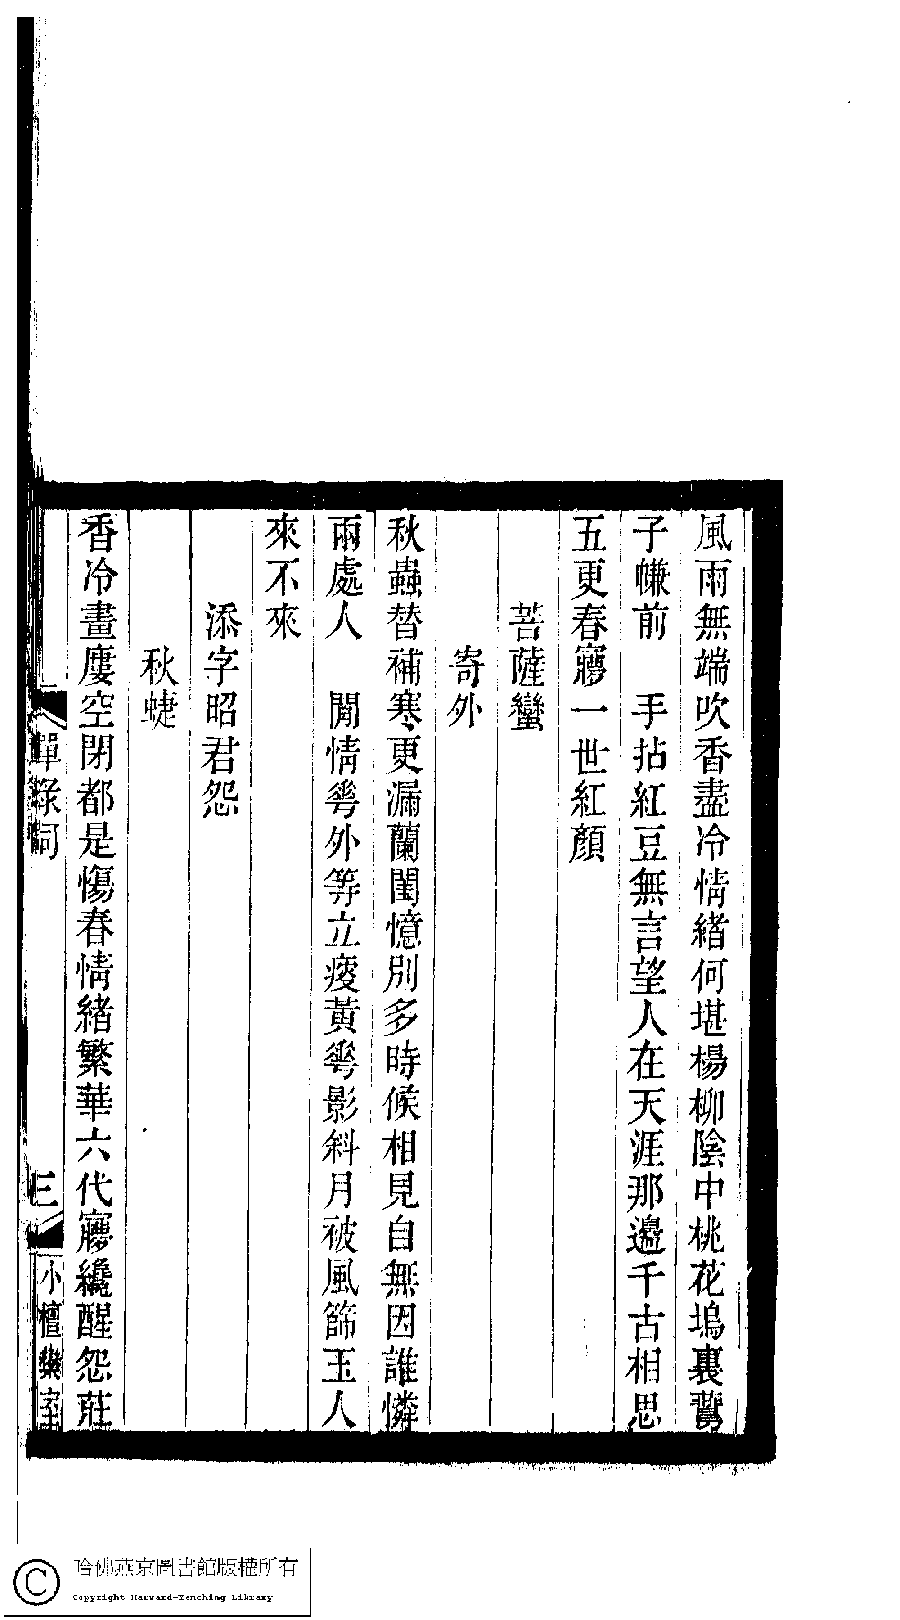 風雨無端吹香盡冷情緒何堪楊柳陰中桃花塢裏鸎
子㡘前　手拈紅豆無言望人在天涯那邊千古相思
五更春寢一世紅顏
菩薩蠻
寄外
秋蟲替補寒更漏蘭閨憶別多時候相見自無因誰憐
兩處人　閒情甹外等立痠黃甹影斜月被風篩玉人
來不來
添字昭君怨
秋蜨
香冷畫廔空閉都是傷春情緒繁華六代寢纔醒怨莊
詞
三
小檀欒室
哈佛燕京圖書館版權所有
Copyright Harvard-Yenching Library